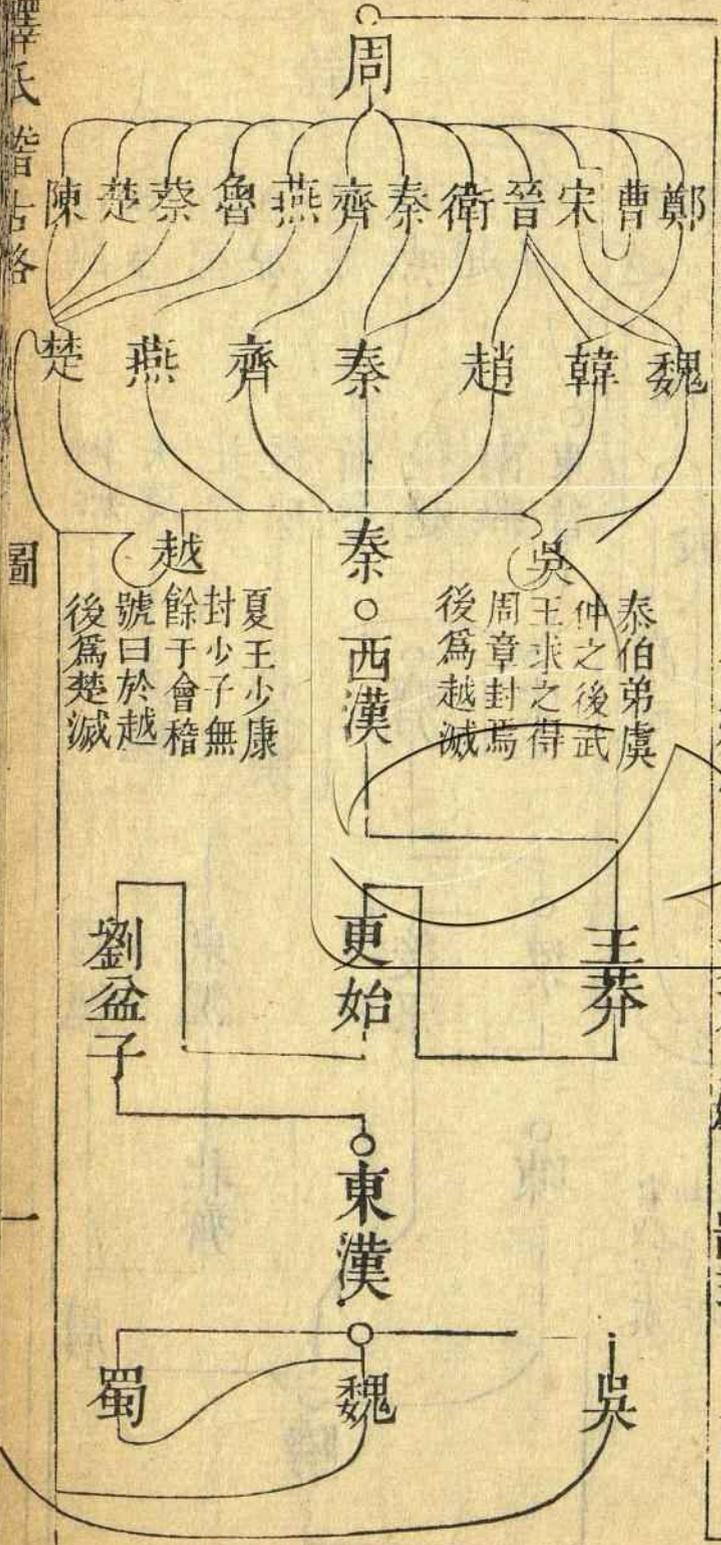 周
鄭 曹 宋 晉 衛 秦 齊 燕 魯 蔡 楚 陳
魏 韓 趙 秦 齊 燕 楚
吳
泰伯弟虞
仲之後武
王求之得
周章封焉
後爲越滅
秦
西漢
越
夏王少康
封少子無
餘于會稽
號曰於越
後爲楚滅
王莽
更始
劉盆子
東漢
吳 魏 蜀
釋氏稽古略 圖 一